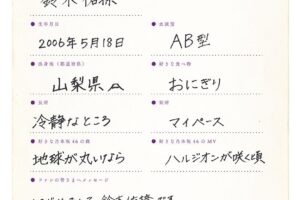 生年月日
血液型
2006年5月18日
AB型
出身地（都道府県）
好きな食べ物
山梨県
おにぎり
長所
短所
冷静なところ
マイペース
好きな乃木坂46の曲
好きな乃木坂46のMV
地球が丸いなら
ハルジオンが咲く頃
ファンの皆さまへメッセージ